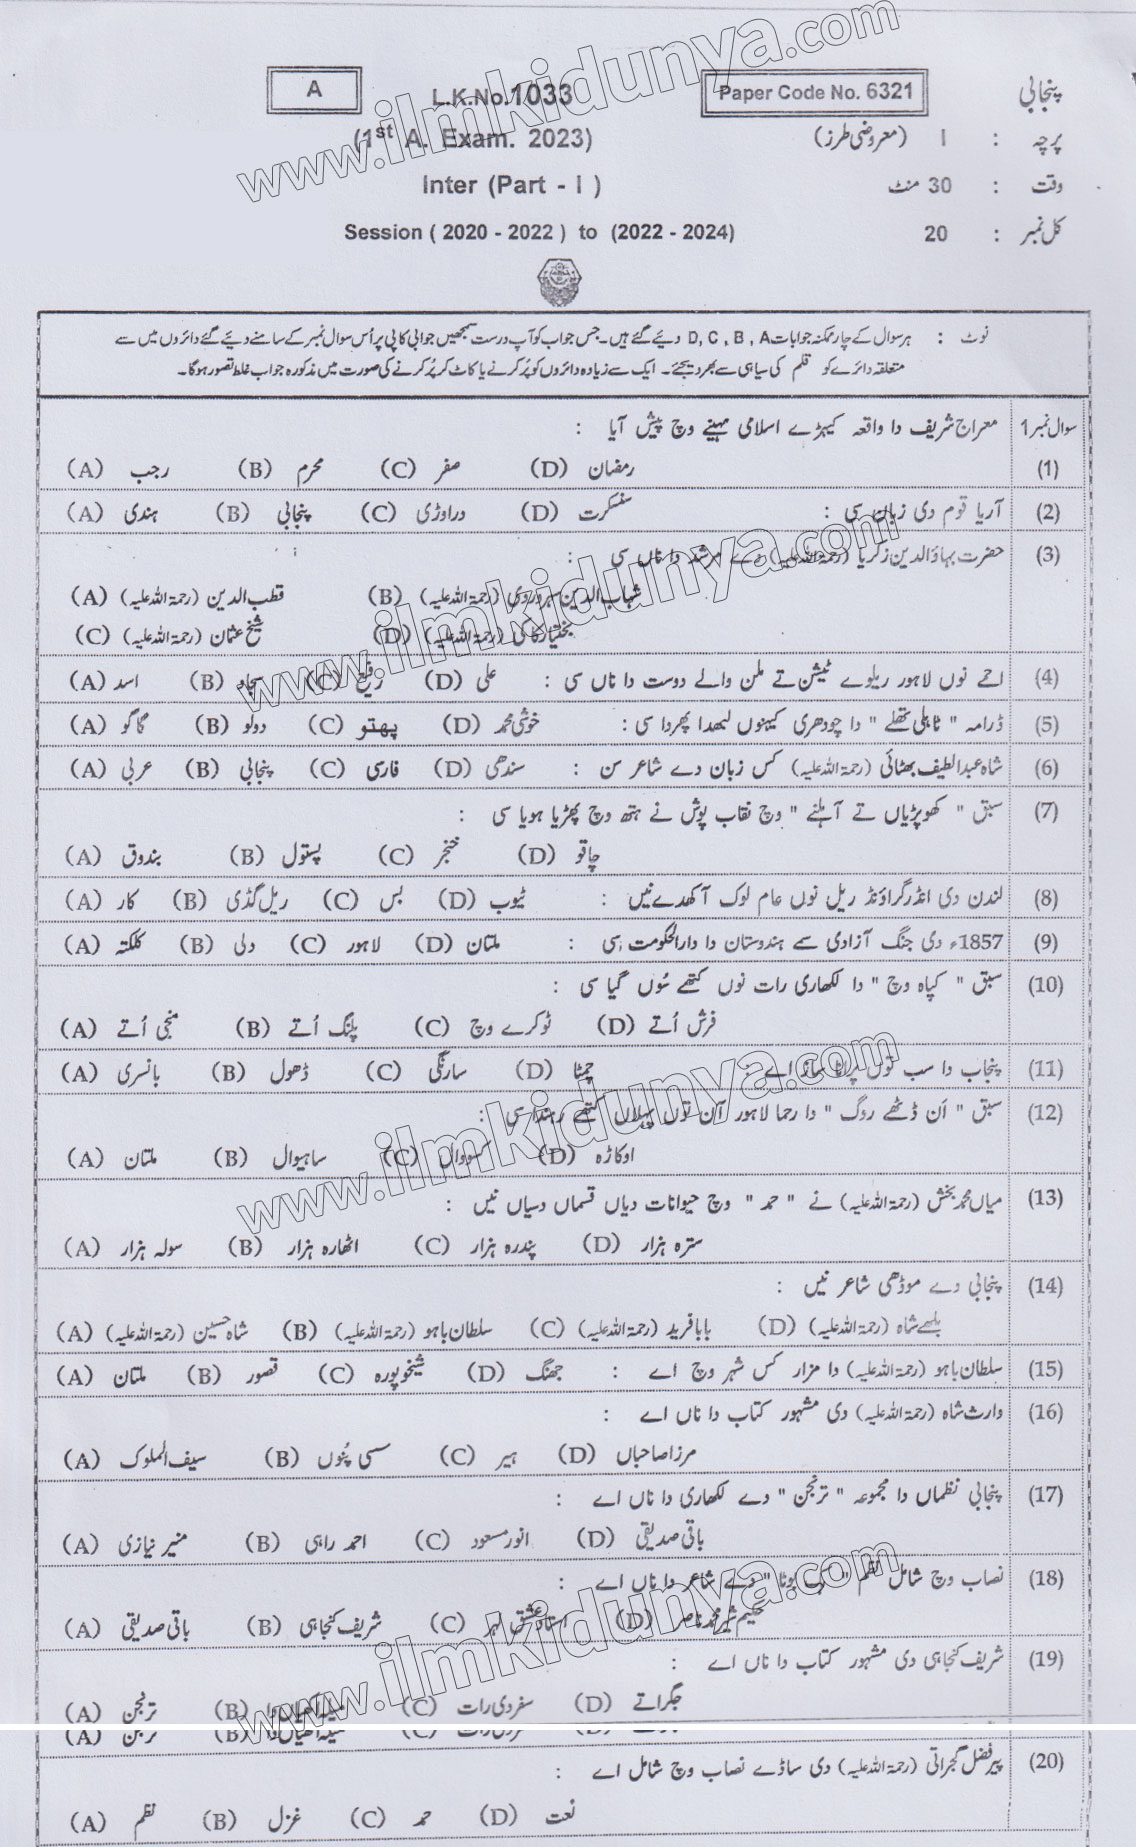 www.ilmkidunya.com
A
L.K.No.1033
Paper Code No. 6321
پنجابی
(1st A. Exam. 2023)
پرچہ : I (معروضی طرز)
Inter (Part - I )
وقت : 30 منٹ
Session ( 2020 - 2022 ) to (2022 - 2024)
کل نمبر : 20
نوٹ : ہر سوال کے چار ممکنہ جوابات D, C , B , A دیے گئے ہیں۔ جس جواب کو آپ درست سمجھیں جوابی کاپی پر اُس سوال نمبر کے سامنے دیئے گئے دائروں میں سے
متعلقہ دائرے کو قلم کی سیاہی سے بھر دیجئے۔ ایک سے زیادہ دائروں کو پُر کرنے یا کاٹ کر پُر کرنے کی صورت میں مذکورہ جواب غلط تصور ہوگا۔
سوال نمبر 1 معراج شریف دا واقعہ کیہڑے اسلامی مہینے وچ پیش آیا :
(1) (A) رجب (B) محرم (C) صفر (D) رمضان
(2) آریا قوم دی زبان سی : (A) ہندی (B) پنجابی (C) دراوڑی (D) سنسکرت
(3) حضرت بہاؤالدین زکریا (رحمۃ اللہ علیہ) دے مرشد دا ناں سی :
(A) قطب الدین (رحمۃ اللہ علیہ) (B) شہاب الدین سہروردی (رحمۃ اللہ علیہ)
(C) شیخ عثمان (رحمۃ اللہ علیہ) (D) بختیار کاکی (رحمۃ اللہ علیہ)
(4) احمے نوں لاہور ریلوے ٹیشن تے ملن والے دوست دا ناں سی : (A) اسد (B) سجاد (C) رفیع (D) علی
(5) ڈرامہ " ٹاہلی تھلے " دا چودھری کیہنوں لبھدا پھردا سی : (A) گاگو (B) دولو (C) پھتو (D) خوشی محمد
(6) شاہ عبدالطیف بھٹائی (رحمۃ اللہ علیہ) کس زبان دے شاعر سن : (A) عربی (B) پنجابی (C) فارسی (D) سندھی
(7) سبق " کھوپڑیاں تے آہلنے " وچ نقاب پوش نے ہتھ وچ پھڑیا ہویا سی :
(A) بندوق (B) پستول (C) خنجر (D) چاقو
(8) لندن دی انڈر گراؤنڈ ریل نوں عام لوک آکھدے نیں : (A) کار (B) ریل گڈی (C) بس (D) ٹیوب
(9) 1857ء دی جنگ آزادی سے ہندوستان دا دارالحکومت سی : (A) کلکتہ (B) دلی (C) لاہور (D) ملتان
(10) سبق " کپاہ وچ " دا لکھاری رات نوں کتھے سُوں گیا سی :
(A) منجی اُتے (B) پلنگ اُتے (C) ٹوکرے وچ (D) فرش اُتے
(11) پنجاب دا سب توں پرانا ساز اے : (A) بانسری (B) ڈھول (C) سارنگی (D) چمٹا
(12) سبق " اَن ڈٹھے روگ " دا رحما لاہور آن توں پہلاں کتھے رہندا سی :
(A) ملتان (B) ساہیوال (C) کسووال (D) اوکاڑہ
(13) میاں محمد بخش (رحمۃ اللہ علیہ) نے " حمد " وچ حیوانات دیاں قسماں دسیاں نیں :
(A) سولہ ہزار (B) اٹھارہ ہزار (C) پندرہ ہزار (D) سترہ ہزار
(14) پنجابی دے موڈھی شاعر نیں :
(A) شاہ حسین (رحمۃ اللہ علیہ) (B) سلطان باہو (رحمۃ اللہ علیہ) (C) بابا فرید (رحمۃ اللہ علیہ) (D) بلھے شاہ (رحمۃ اللہ علیہ)
(15) سلطان باہو (رحمۃ اللہ علیہ) دا مزار کس شہر وچ اے : (A) ملتان (B) قصور (C) شیخوپورہ (D) جھنگ
(16) وارث شاہ (رحمۃ اللہ علیہ) دی مشہور کتاب دا ناں اے :
(A) سیف الملوک (B) سسی پنوں (C) ہیر (D) مرزا صاحباں
(17) پنجابی نظماں دا مجموعہ " ترنجن " دے لکھاری دا ناں اے :
(A) منیر نیازی (B) احمد راہی (C) انور مسعود (D) باقی صدیقی
(18) نصاب وچ شامل نظم " بوٹا " دے شاعر دا ناں اے :
(A) باقی صدیقی (B) شریف کنجاہی (C) استاد عشق لہر (D) حکیم شیر محمد ناصر
(19) شریف کنجاہی دی مشہور کتاب دا ناں اے :
(A) ترنجن (B) مینہ اکھیاں دا (C) سفر دی رات (D) جگراتے
(20) پیر فضل گجراتی (رحمۃ اللہ علیہ) دی ساڈے نصاب وچ شامل اے :
(A) نظم (B) غزل (C) حمد (D) نعت